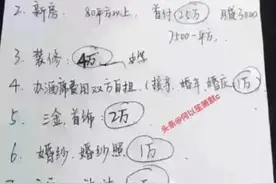 2、新房 80平方以上, 首付 25万 月贷3000
7500-4万。
3、装修: 4万
4、办酒席费用双方自担、(接亲、婚车、婚庆: 1万
5、三金、首饰: 2万
6、婚纱、婚纱照: 1万
头条@何以笙箫默c